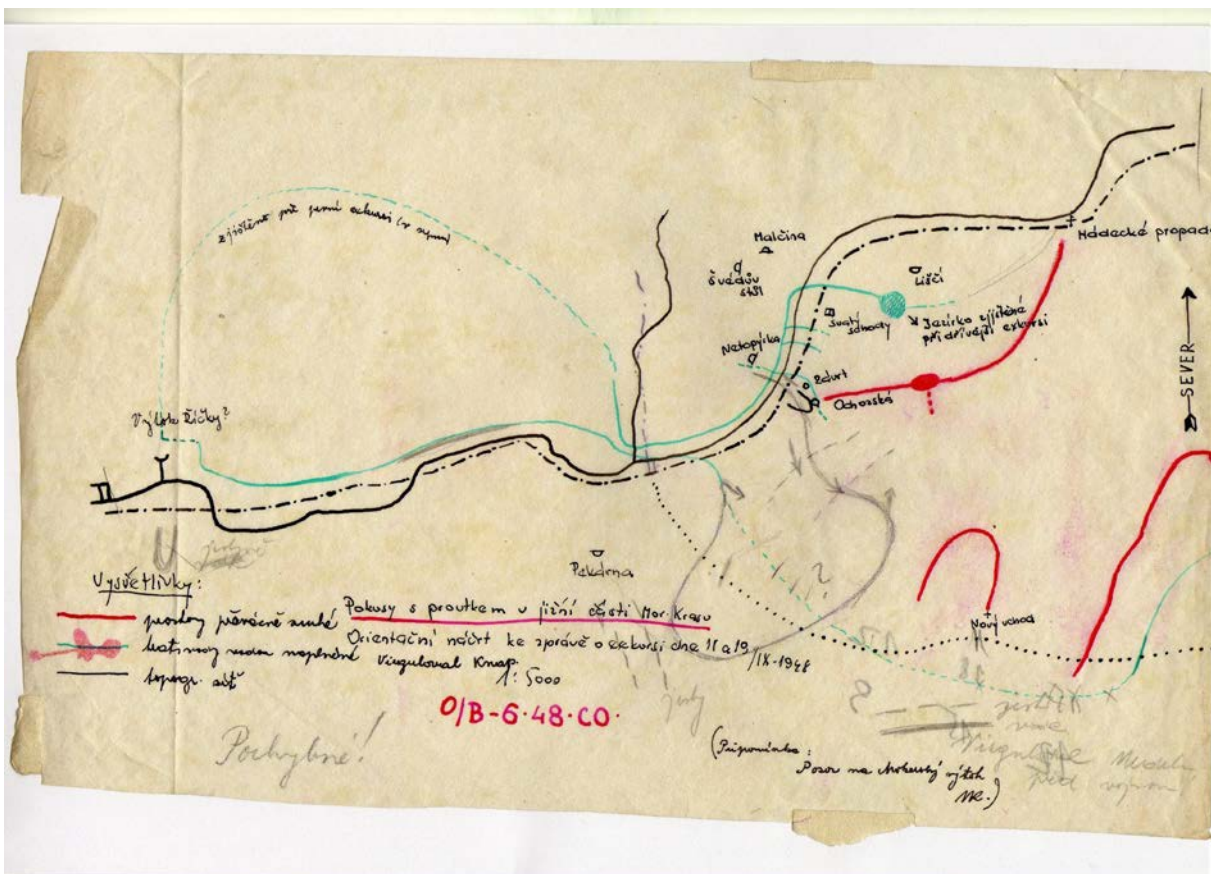 zjištěno při první exkursi (v srpnu)
Malčina
Švédův
stůl
Liščí
Hádecké propadá
Svatý
schody
Jezírko zjištěné
při dřívější exkursi
Netopýrka
Závrt
Ochozská
SEVER
Výtok Říčky?
Pekárna
?
Nový vchod
Vysvětlivky:
prostory převážně suché
prostory vodou naplněné
topogr. síť
Pokusy s proutkem v jižní části Mor. Krasu
Orientační náčrt ke zprávě o exkursi dne 11 a 19
/IX-1948
Virguloval Knap
1: 5000
O/B-6·48·CO·
Pochybné!
(Připomínka:
Pozor na Mokerský výtok